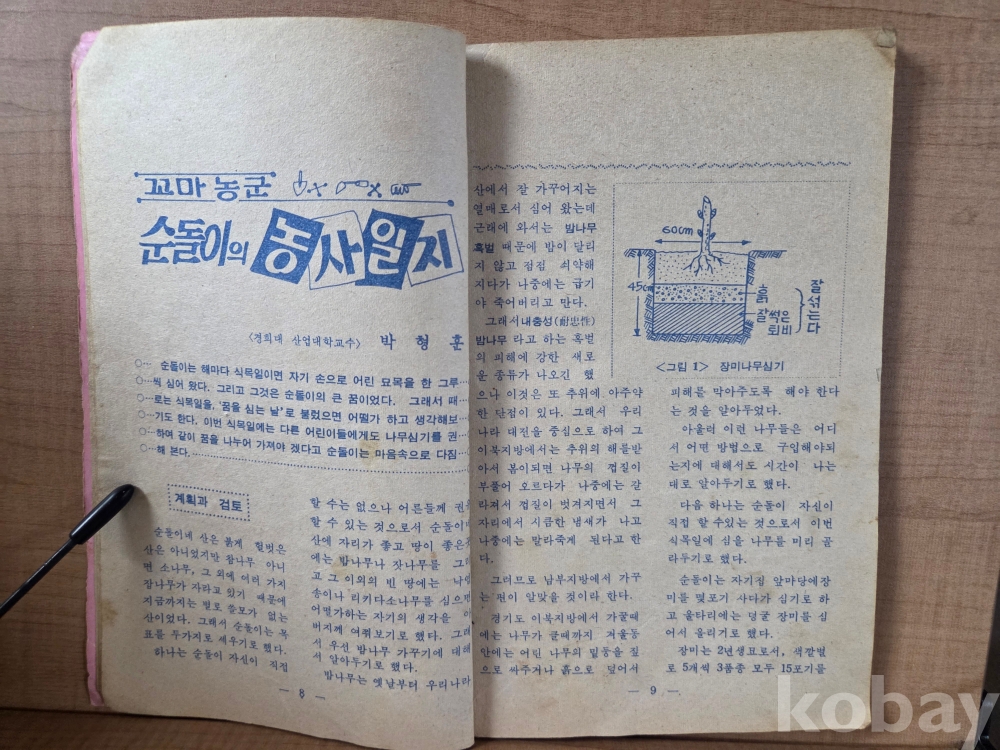 꼬마 농군
순돌이의 농사일지
〈경희대 산업대학교수〉 박 형 훈
○… 순돌이는 해마다 식목일이면 자기 손으로 어린 묘목을 한 그루…
○…씩 심어 왔다. 그리고 그것은 순돌이의 큰 꿈이었다. 그래서 때…
○…로는 식목일을, '꿈을 심는 날'로 불렀으면 어떨가 하고 생각해보…
○…기도 한다. 이번 식목일에는 다른 어린이들에게도 나무심기를 권…
○…하여 같이 꿈을 나누어 가져야 겠다고 순돌이는 마음속으로 다짐…
○…해 본다.
계획과 검토
순돌이네 산은 붉게 헐벗은
산은 아니었지만 참나무 아니
면 소나무, 그 외에 여러 가지
잡나무가 자라고 있기 때문에
지금까지는 별로 쓸모가 없는
산이었다. 그래서 순돌이는 목
표를 두가지로 세우기로 했다.
하나는 순돌이 자신이 직접
할 수는 없으나 어른들께 권
할 수 있는 것으로서 순돌이
산에 자리가 좋고 땅이 좋은
에는 밤나무나 잣나무를 그
고 그 이외의 빈 땅에는
송이나 리키다소나무를 심으면
어떨가하는 자기의 생각을
버지께 여쭤보기로 했다. 그래
서 우선 밤나무 가꾸기에 대해
서 알아두기로 했다.
밤나무는 옛날부터 우리나라
— 8 —
산에서 잘 가꾸어지는
열매로서 심어 왔는데
근래에 와서는 밤나무
혹벌 때문에 밤이 달리
지 않고 점점 쇠약해
지다가 나중에는 급기
야 죽어버리고 만다.
그래서 내충성(耐忠性)
밤나무 라고 하는 혹벌
의 피해에 강한 새로
운 종류가 나오긴 했
으나 이것은 또 추위에 아주약
한 단점이 있다. 그래서 우리
나라 대전을 중심으로 하여 그
이북지방에서는 추위의 해를받
아서 봄이되면 나무의 껍질이
부풀어 오르다가 나중에는 갈
라져서 껍질이 벗겨지면서 그
자리에서 시큼한 냄새가 나고
나중에는 말라죽게 된다고 한
다.
그러므로 남부지방에서 가꾸
는 편이 알맞을 것이라 한다.
경기도 이북지방에서 가꿀때
에는 나무가 클때까지 겨울동
안에는 어린 나무의 밑둥을 짚
으로 싸주거나 흙으로 덮어서
60cm
45cm
흙
잘썩은
퇴비
잘섞는다
<그림 1> 장미나무심기
피해를 막아주도록 해야 한다
는 것을 알아두었다.
아울러 이런 나무들은 어디
서 어떤 방법으로 구입해야되
는지에 대해서도 시간이 나는
대로 알아두기로 했다.
다음 하나는 순돌이 자신이
직접 할 수있는 것으로서 이번
식목일에 심을 나무를 미리 골
라두기로 했다.
순돌이는 자기집 앞마당에장
미를 몇포기 사다가 심기로 하
고 울타리에는 덩굴 장미를 심
어서 올리기로 했다.
장미는 2년생묘로서, 색깔별
로 5개씩 3품종 모두 15포기를
— 9 —
kobay